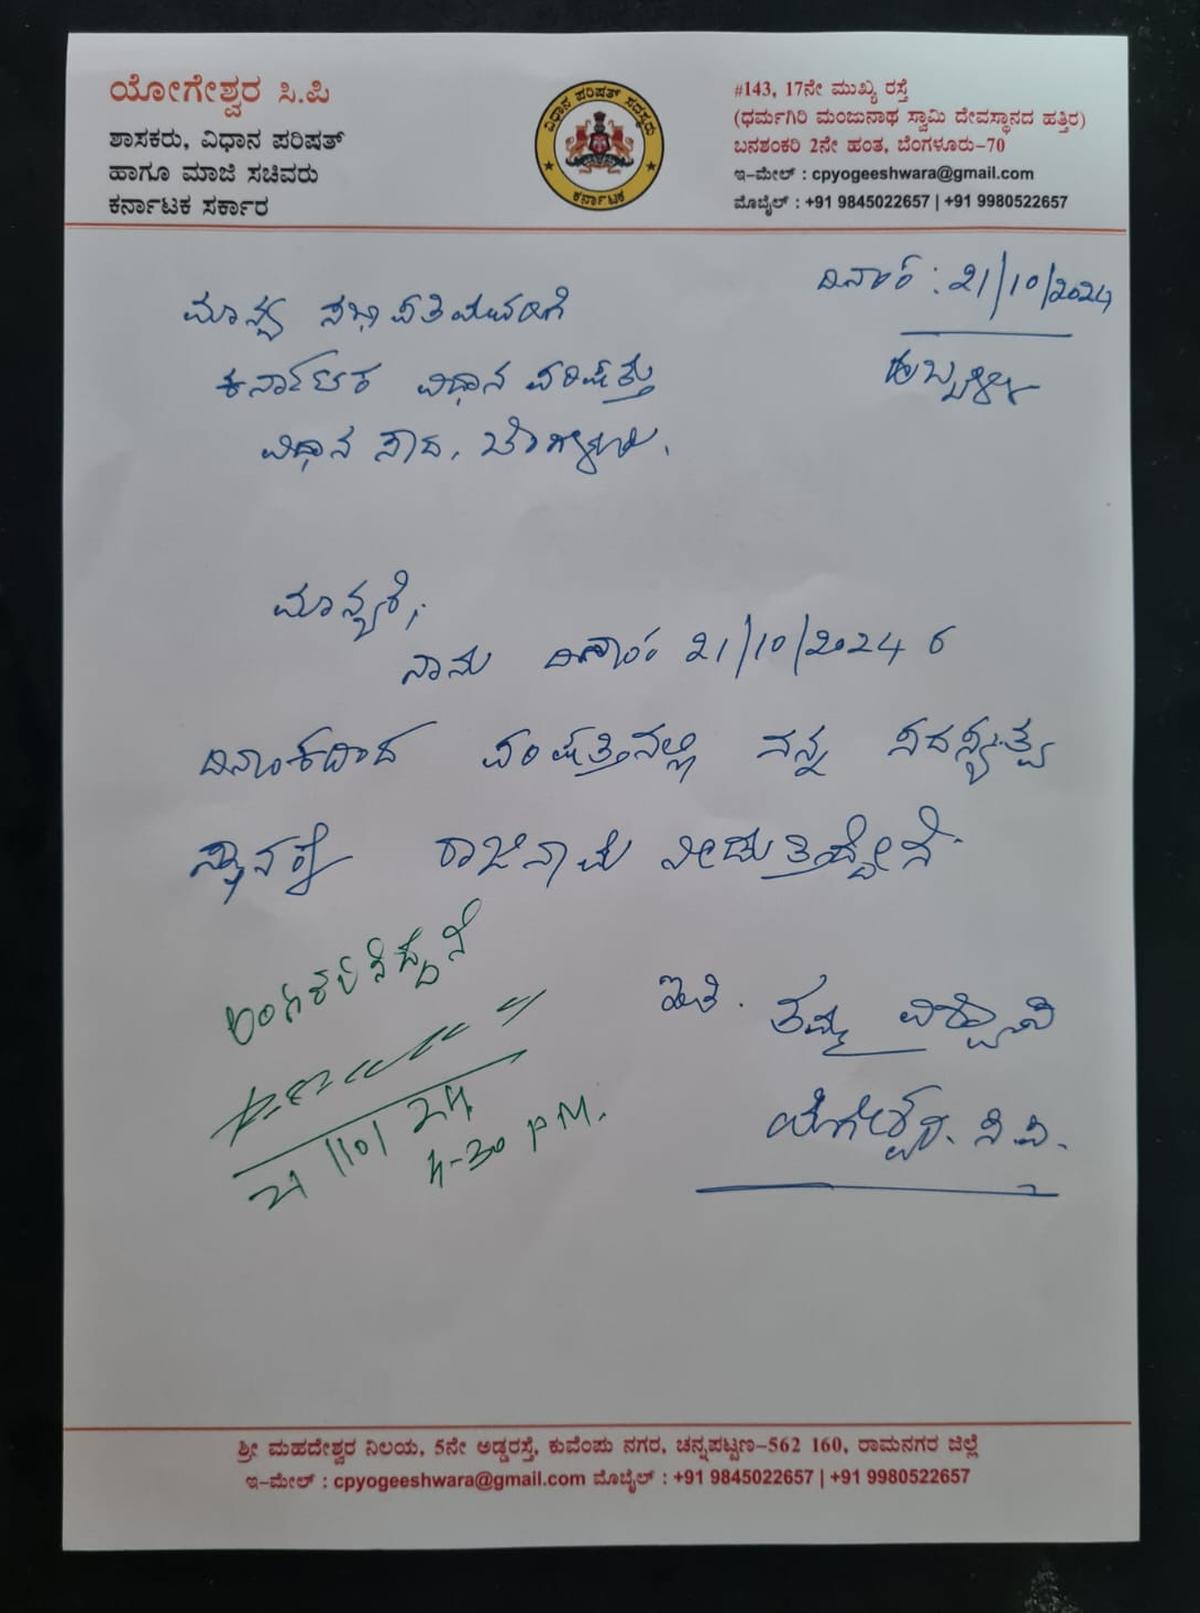 ಯೋಗೇಶ್ವರ ಸಿ.ಪಿ
ಶಾಸಕರು, ವಿಧಾನ ಪರಿಷತ್
ಹಾಗೂ ಮಾಜಿ ಸಚಿವರು
ಕರ್ನಾಟಕ ಸರ್ಕಾರ
ವಿಧಾನ ಪರಿಷತ್ ಸದಸ್ಯರು
ಕರ್ನಾಟಕ
#143, 17ನೇ ಮುಖ್ಯ ರಸ್ತೆ
(ಧರ್ಮಗಿರಿ ಮಂಜುನಾಥ ಸ್ವಾಮಿ ದೇವಸ್ಥಾನದ ಹತ್ತಿರ)
ಬನಶಂಕರಿ 2ನೇ ಹಂತ, ಬೆಂಗಳೂರು-70
ಇ-ಮೇಲ್ : cpyogeeshwara@gmail.com
ಮೊಬೈಲ್ : +91 9845022657 | +91 9980522657
ದಿನಾಂಕ : 21/10/2024
ಹುಬ್ಬಳ್ಳಿ
ಮಾನ್ಯ ಸಭಾಪತಿಯವರಿಗೆ
ಕರ್ನಾಟಕ ವಿಧಾನ ಪರಿಷತ್ತು
ವಿಧಾನ ಸೌಧ, ಬೆಂಗಳೂರು.
ಮಾನ್ಯರೆ,
ನಾನು ದಿನಾಂಕ 21/10/2024 ರ
ದಿನಾಂಕದಿಂದ ಪರಿಷತ್ತಿನಲ್ಲಿ ನನ್ನ ಸದಸ್ಯತ್ವ
ಸ್ಥಾನಕ್ಕೆ ರಾಜಿನಾಮೆ ನೀಡುತ್ತಿದ್ದೇನೆ.
ಅಂಗೀಕರಿಸಿದ್ದೇನೆ
21/10/24
4-30 PM.
ಇಂತಿ. ತಮ್ಮ ವಿಶ್ವಾಸಿ
ಯೋಗೇಶ್ವರ. ಸಿ.ಪಿ.
ಶ್ರೀ ಮಹದೇಶ್ವರ ನಿಲಯ, 5ನೇ ಅಡ್ಡರಸ್ತೆ, ಕುವೆಂಪು ನಗರ, ಚನ್ನಪಟ್ಟಣ-562 160, ರಾಮನಗರ ಜಿಲ್ಲೆ
ಇ-ಮೇಲ್ : cpyogeeshwara@gmail.com ಮೊಬೈಲ್ : +91 9845022657 | +91 9980522657